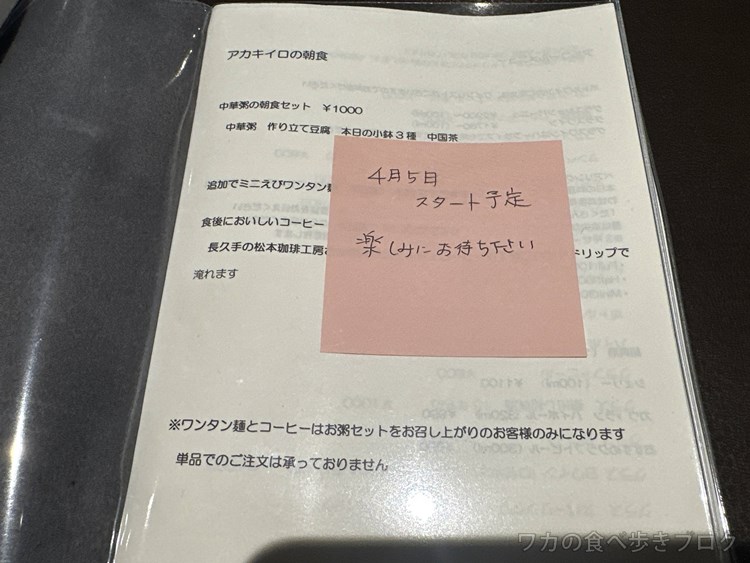 アカキイロの朝食
中華粥の朝食セット ￥1000
中華粥 作り立て豆腐 本日の小鉢３種 中国茶
追加でミニえびワンタン麺
食後においしいコーヒー
長久手の松本珈琲工房
ドリップで
淹れます
4月5日
スタート予定
楽しみにお待ち下さい
※ワンタン麺とコーヒーはお粥セットをお召し上がりのお客様のみになります
単品でのご注文は承っておりません
ワカの食べ歩きブログ